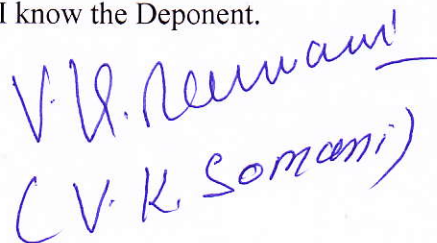 I know the Deponent.
V. K. Somani
(V. K. Somani)